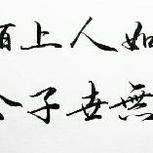 陌上人如
公子世無